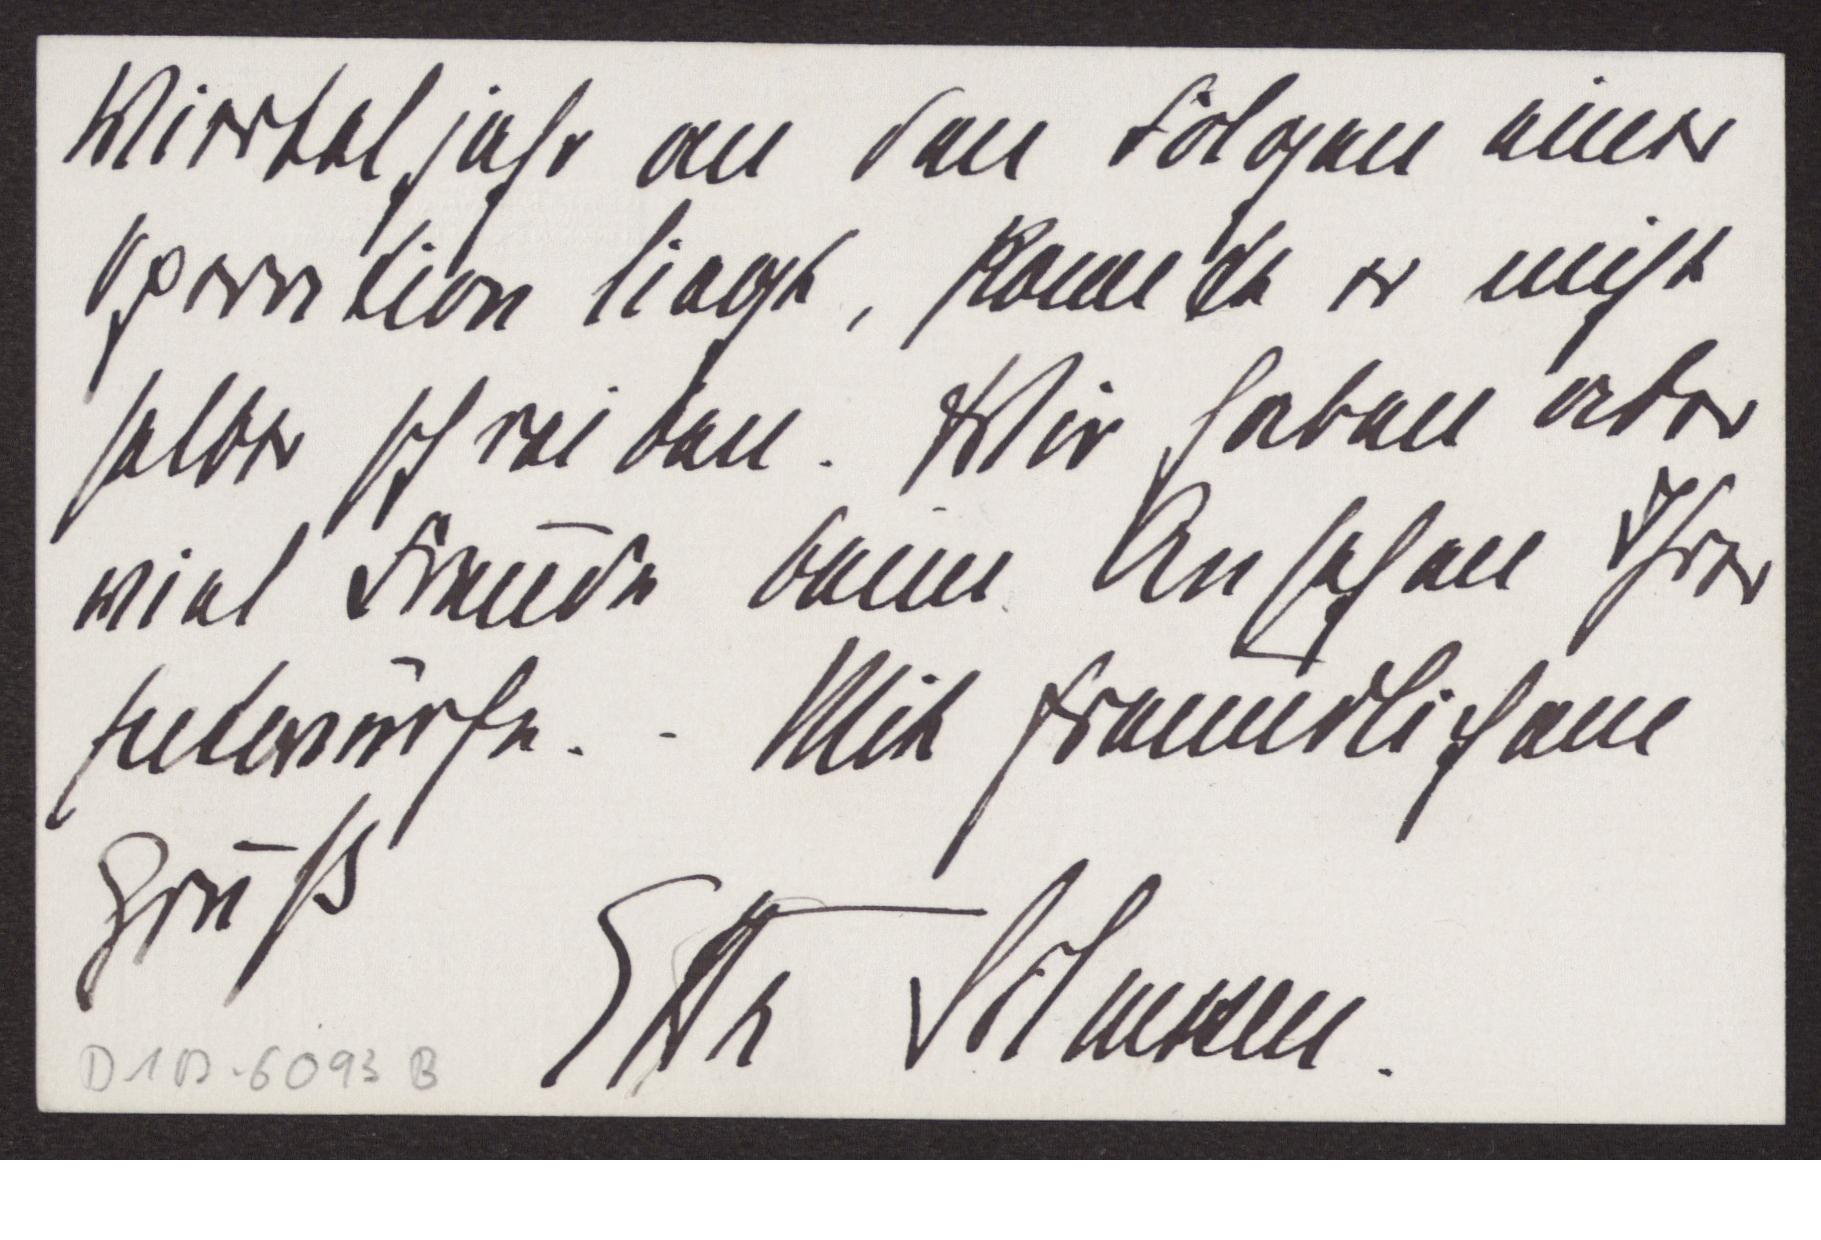 Vierteljahr an den Folgen einer
Operation liegt, konnte er nicht
selber schreiben. Wir haben aber
viel Freude beim Ansehen Ihrer
Entwürfe. - Mit freundlichem
Gruß
D 1 D-6093 B